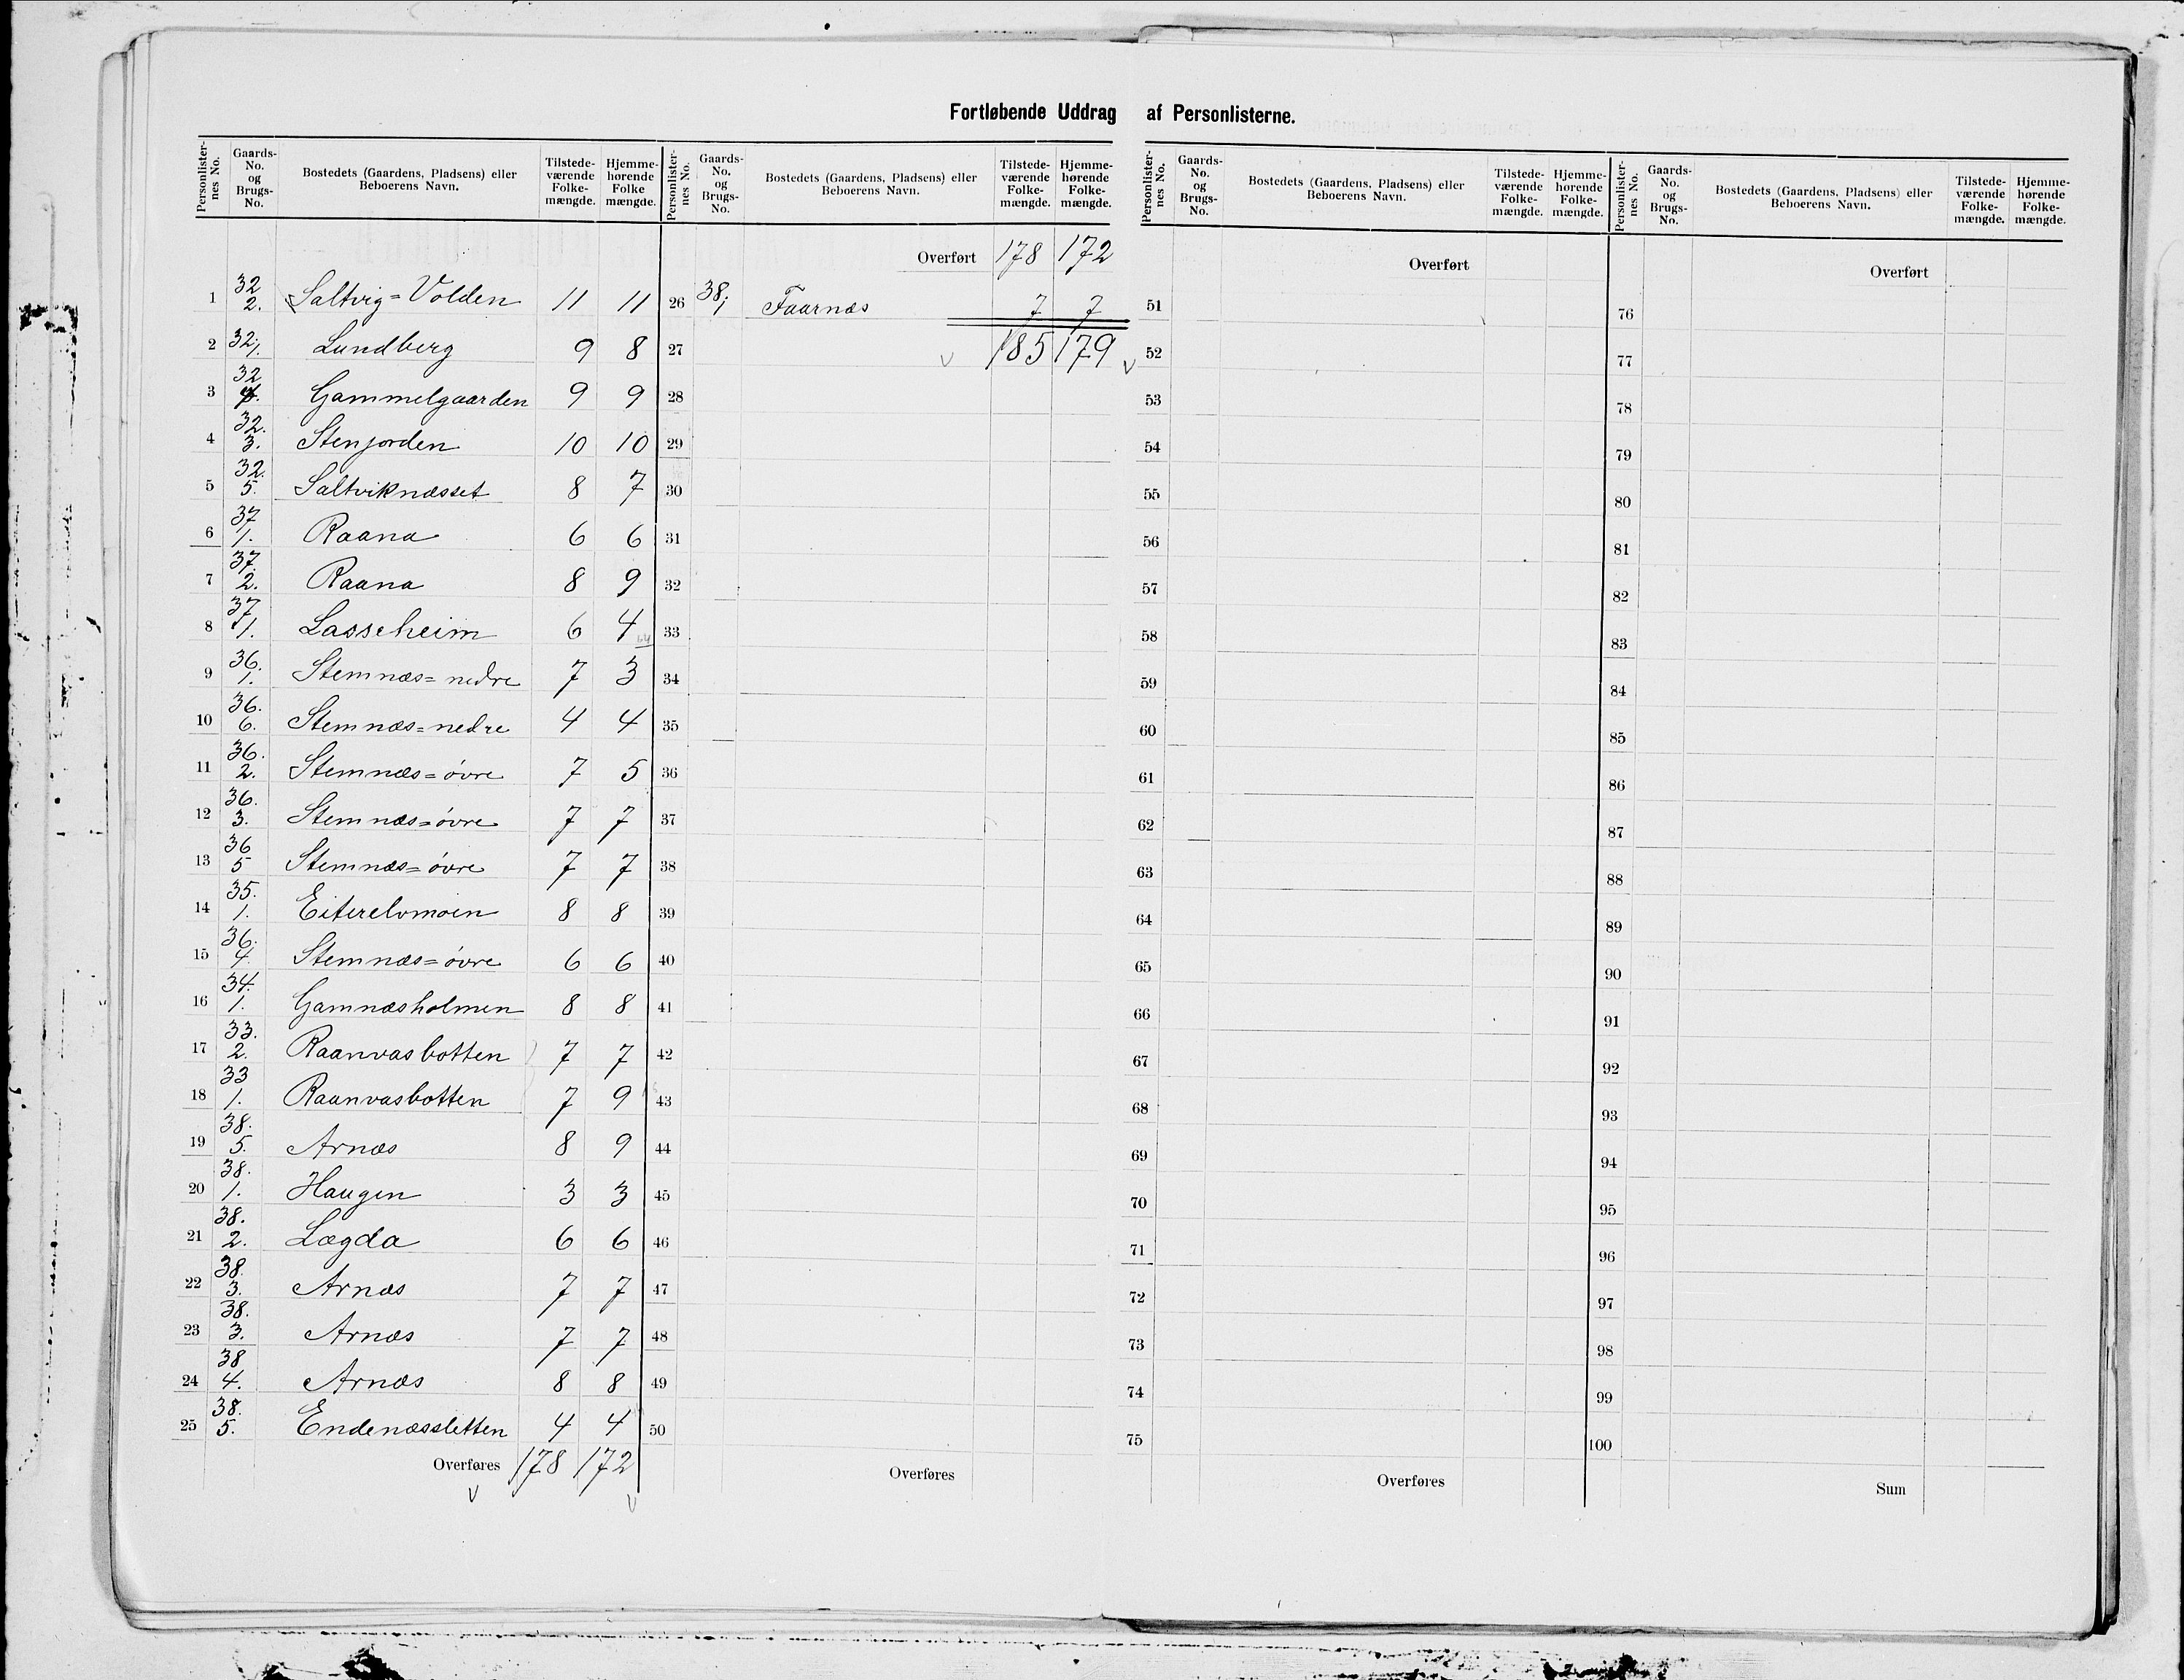 Fortløbende Uddrag af Personlisterne.
Personlister-nes No. Gaards-No. og Brugs-No. Bostedets (Gaardens, Pladsens) eller Beboerens Navn. Tilstede-værende Folke-mængde. Hjemme-hørende Folke mængde.
1 32 2. Saltvig=Volden 11 11
2 32, 1. Lundberg 9 8
3 32 Gammelgaarden 9 9
4 32. 3. Stenjorden 10 10
5 32. 5. Saltviknæsset 8 7
6 37 1. Raana 6 6
7 37. 2. Raana 8 9
8 37 1. Lasseheim 6 4
9 36. 1. Stemnæs=nedre 7 3
10 36. 6. Stemnæs=nedre 4 4
11 36. 2. Stemnæs=óvre 7 5
12 36. 3. Stemnæs=óvre 7 7
13 36 5 Stemnæs=óvre 7 7
14 35. 1. Eiterelvmoen 8 8
15 36. 4. Stemnæs=óvre 6 6
16 34. 1. Gamnæsholmen 8 8
17 33. 2. Raanvasbotten 7 7
18 33 1. Raanvasbotten 7 9
19 38. 5. Arnæs 8 9
20 38. 1. Haugen 3 3
21 38. 2. Lægda 6 6
22 38. 3. Arnæs 7 7
23 38. 3. Arnæs 7 7
24 38 4. Arnæs 8 8
25 38. 5. Endenæssletten 4 4
Overføres 178 172
Personlister-nes No. Gaards-No. og Brugs-No. Bostedets (Gaardens, Pladsens) eller Beboerens Navn. Tilstede-værende Folke-mængde. Hjemme-hørende Folke-mængde.
Overført 178 172
26 38, 1 Faarnæs 7 7
27 185 179
28
29
30
31
32
33
34
35
36
37
38
39
40
41
42
43
44
45
46
47
48
49
50
Overføres
Personlister-nes No. Gaards-No. og Brugs-No. Bostedets (Gaardens, Pladsens) eller Beboerens Navn. Tilstede-værende Folke-mængde. Hjemme-hørende Folke-mængde.
Overført
51
52
53
54
55
56
57
58
59
60
61
62
63
64
65
66
67
68
69
70
71
72
73
74
75
Overføres
Personlister-nes No. Gaards-No. og Brugs-No. Bostedets (Gaardens, Pladsens) eller Beboerens Navn. Tilstede-værende Folke-mængde. Hjemme-hørende Folke-mængde.
Overført
76
77
78
79
80
81
82
83
84
85
86
87
88
89
90
91
92
93
94
95
96
97
98
99
100
Sum